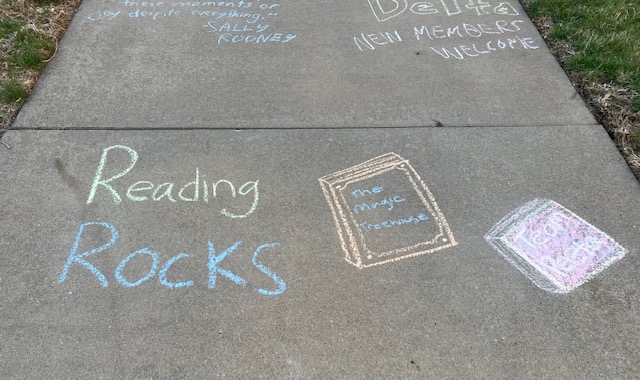 these moments of
joy despite everything."
SALLY
ROONEY
Delta
NEW MEMBERS
WELCOME
Reading
Rocks
The
Magic
Treehouse